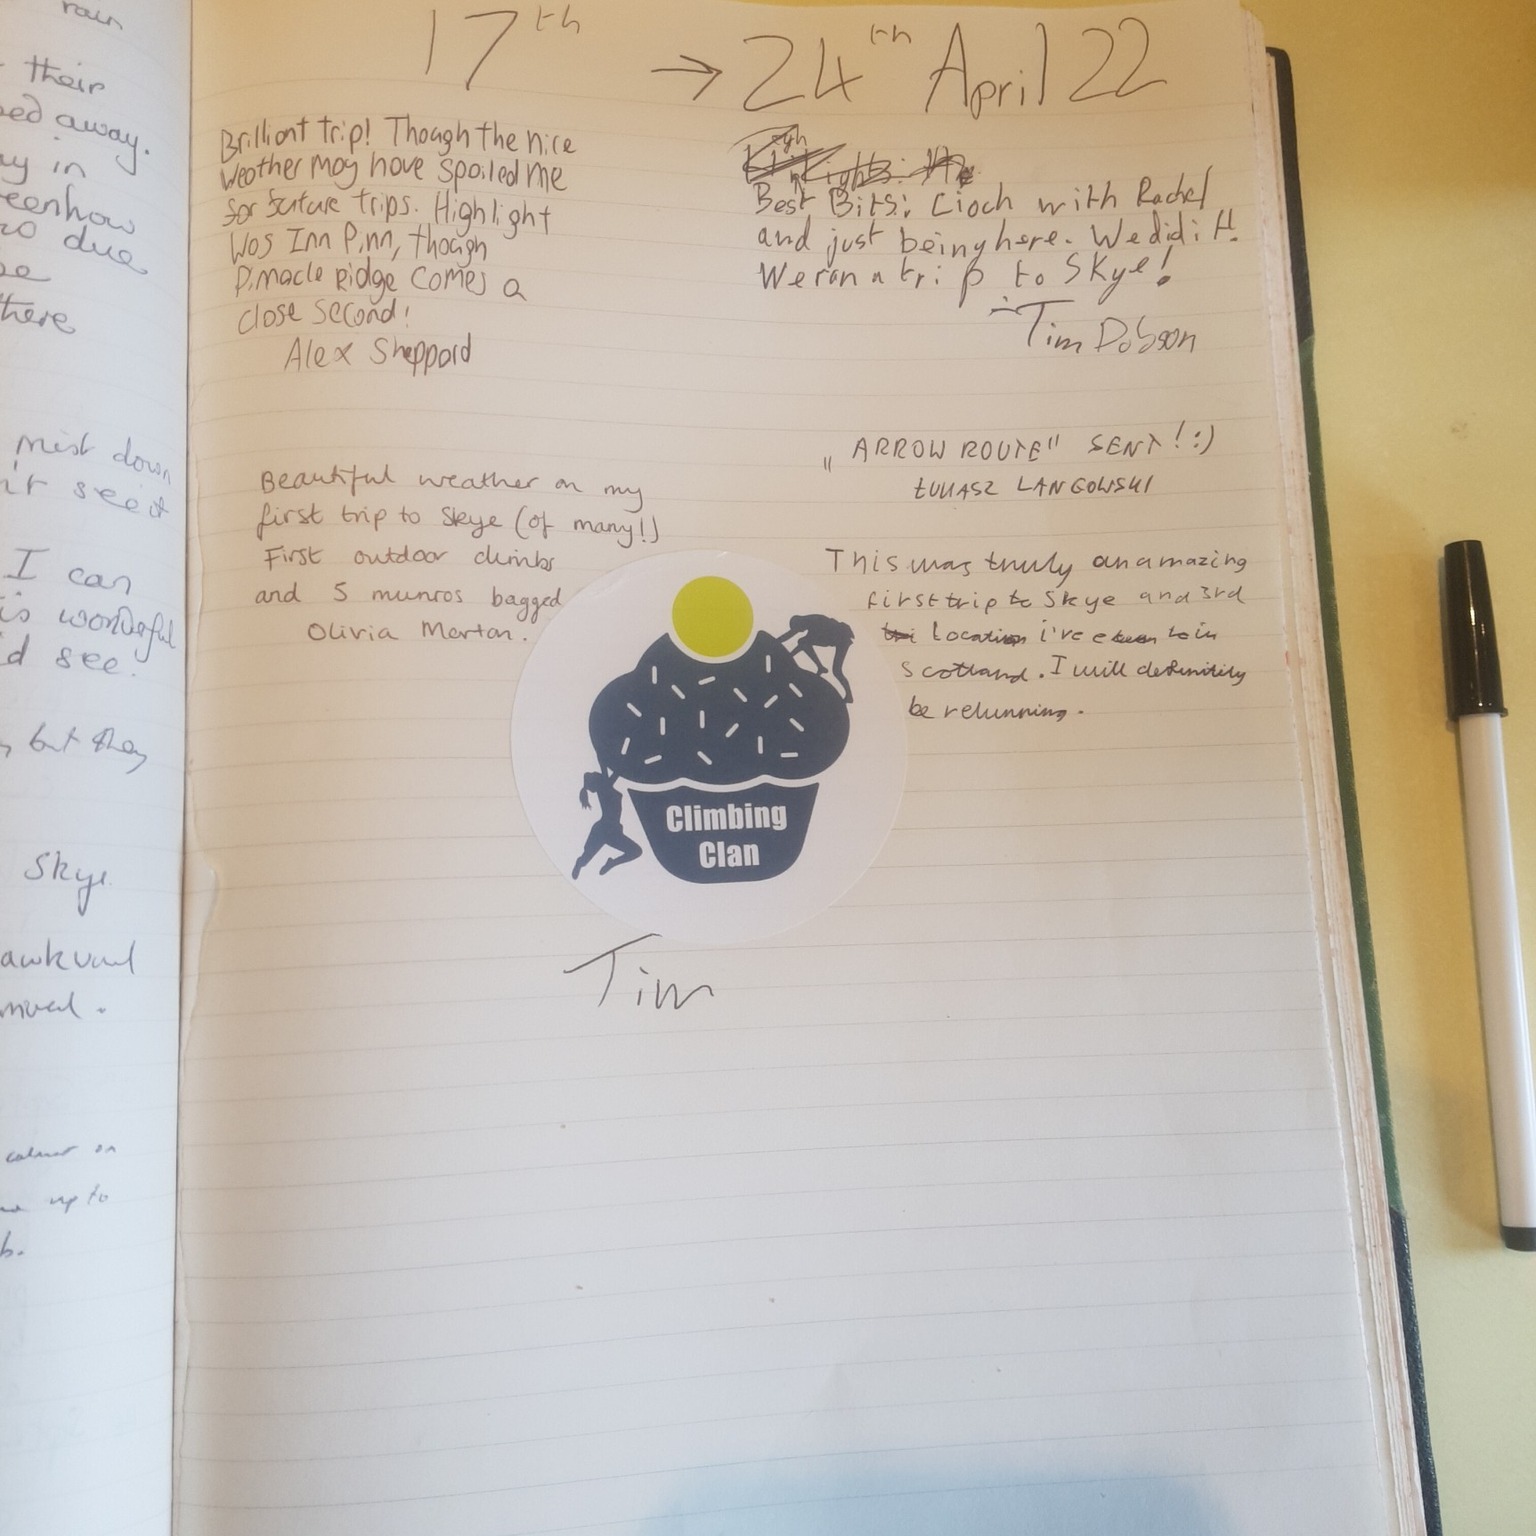 rain
their
ed away.
ay in
eenhow
due
there
mist down
it see it
I can
is wonderful
d see.
but they
Skye
awkward
up to
17th → 24th April 22
Brilliant trip! Though the nice
weather may have spoiled me
for future trips. Highlight
was Inn Pinn, though
Pinnacle Ridge comes a
close second!
Alex Sheppard
Best Bits: Cioch with Rachel
and just being here. We did it!
We ran a trip to Skye!
Tim Dobson
„ARROW ROUTE" SENT! :)
ŁUKASZ LANGOWSKI
Beautiful weather on my
first trip to Skye (of many!)
First outdoor climbs
and 5 munros bagged
Olivia Morton.
This was truly an amazing
first trip to Skye and 3rd
location i've been to in
Scotland. I will definitily
be retunning.
Climbing
Clan
Tim